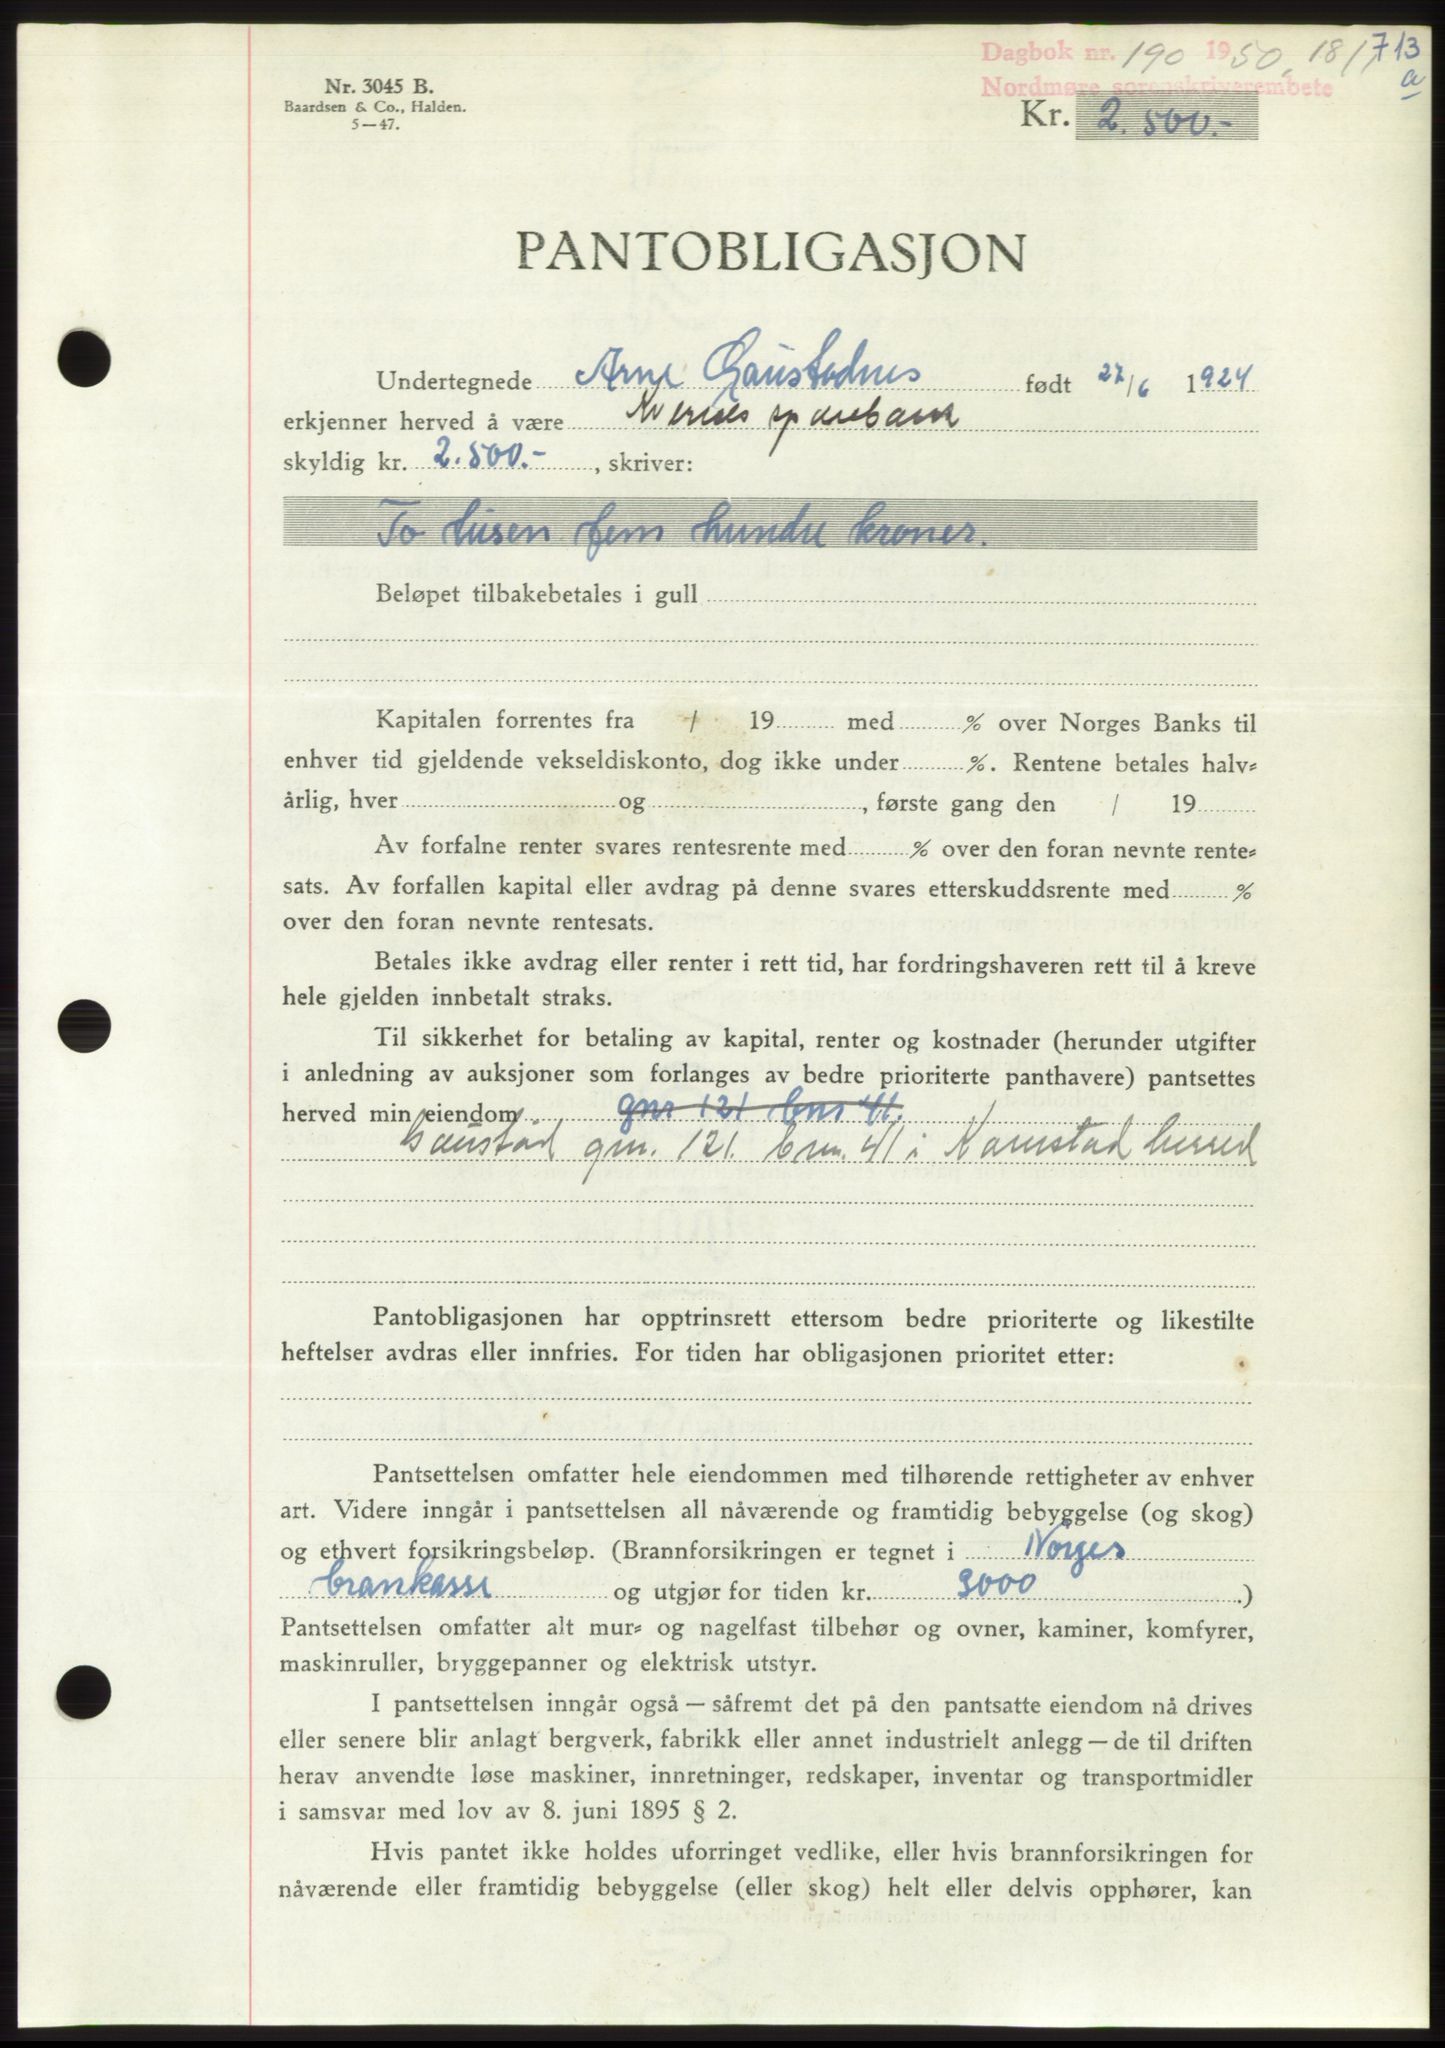 Dagbok nr. 190 1950, 18/1 713
Nordmøre sorenskriverembete a
Nr. 3045 B.
Baardsen & Co., Halden.
5—47.
Kr. 2.500.-
PANTOBLIGASJON
Undertegnede Arne Gaustadnes født 27/6 1924
erkjenner herved å være Kvernes sparebank
skyldig kr. 2.500.- , skriver:
To tusen fem hundre kroner.
Beløpet tilbakebetales i gull
Kapitalen forrentes fra / 19 med % over Norges Banks til
enhver tid gjeldende vekseldiskonto, dog ikke under %. Rentene betales halv-
årlig, hver og , første gang den / 19
Av forfalne renter svares rentesrente med % over den foran nevnte rente-
sats. Av forfallen kapital eller avdrag på denne svares etterskuddsrente med %
over den foran nevnte rentesats.
Betales ikke avdrag eller renter i rett tid, har fordringshaveren rett til å kreve
hele gjelden innbetalt straks.
Til sikkerhet for betaling av kapital, renter og kostnader (herunder utgifter
i anledning av auksjoner som forlanges av bedre prioriterte panthavere) pantsettes
herved min eiendom gnr 121 bnr 41.
Gaustad gnr. 121. bnr. 41 i Kornstad herred
Pantobligasjonen har opptrinsrett ettersom bedre prioriterte og likestilte
heftelser avdras eller innfries. For tiden har obligasjonen prioritet etter:
Pantsettelsen omfatter hele eiendommen med tilhørende rettigheter av enhver
art. Videre inngår i pantsettelsen all nåværende og framtidig bebyggelse (og skog)
og ethvert forsikringsbeløp. (Brannforsikringen er tegnet i Norges
brankasse og utgjør for tiden kr. 9000 .)
Pantsettelsen omfatter alt mur- og nagelfast tilbehør og ovner, kaminer, komfyrer,
maskinruller, bryggepanner og elektrisk utstyr.
I pantsettelsen inngår også — såfremt det på den pantsatte eiendom nå drives
eller senere blir anlagt bergverk, fabrikk eller annet industrielt anlegg — de til driften
herav anvendte løse maskiner, innretninger, redskaper, inventar og transportmidler
i samsvar med lov av 8. juni 1895 § 2.
Hvis pantet ikke holdes uforringet vedlike, eller hvis brannforsikringen for
nåværende eller framtidig bebyggelse (eller skog) helt eller delvis opphører, kan